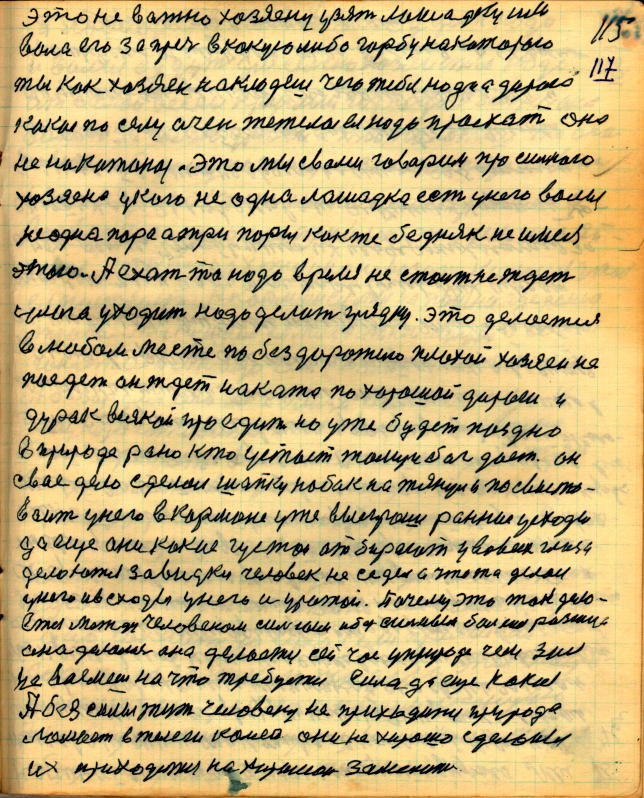 115
117
Это не важно хозяену узят лошадку или
вола его запреч в какую либо гарбу на каторою
ты как хозяен накладеш чего тебе надо а дарога
какая по селу очен тежелая надо праехат оно
не накатоно. Это мы свами говорим про силного
хозяена у кого не одна лашадка ест у него волы
не одна пара а три пары как те бедняк не имел
этого. А ехат та надо время не стоит не ждет
уходит надо делат грядку. Это делоется
в любом месте по бездорожию плохой хозяен не
поедет он ждет наката по хорошой дароги и
дурак всякой проедит но уже будет поздно
в природе рано кто устоет тому и бог доет. он
свае дело сделал шапку на бак натянул и посвисто-
воит у него в кармоне уже выиграш ранние усходы
да еще они какие густои
делоются завидки человек не седел а чтота делал
у него и всходы у него и урожой. Почему это так дело-
ется между человеком
она делоется сей час у природе чем
на что требуется сила да еще какая
А без силы тут человеку не приходится природа
ломает в телеги колеса они не хорошо сделоны
их приходится на хорошои заменит.